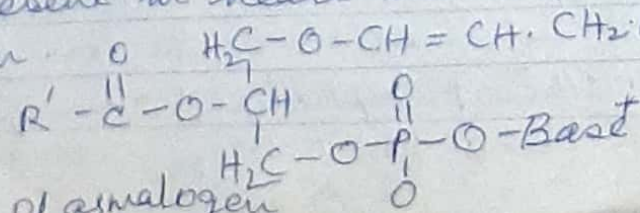 O H₂C-O-CH=CH.CH₂.
R'-C-O-CH O
H₂C-O-P-O-Base⁺
Plasmalogen O